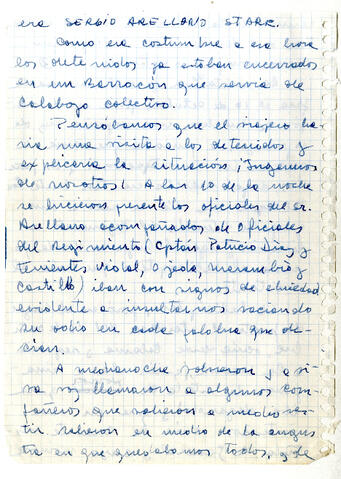 era SERGIO ARELLANO STARK.
Como era costumbre a esa hora
los detenidos ya estaban encerrados
en un Barracón que servia de
Calabozo colectivo.
Pensábamos que el viajero ha-
ria una visita a los detenidos y
explicaria la situación ¡Ingenuos
de nosotros! A las 10 de la noche
se hicieron presente los oficiales del sr.
Arellano acompañados de oficiales
del Regimiento (Cptán Patricio Diaz y
tenientes Vidal, Ojeda, Marambio y
Castillo) iban con signos de ebriedad
evidente a insultarnos vaciando
su odio en cada palabra que de-
cian.
A medianoche volvieron y a vi-
va voz llamaron a algunos com-
pañeros, que salieron a medio ves-
tir. Salieron en medio de la angus-
tia en que quedabamos todos, y de